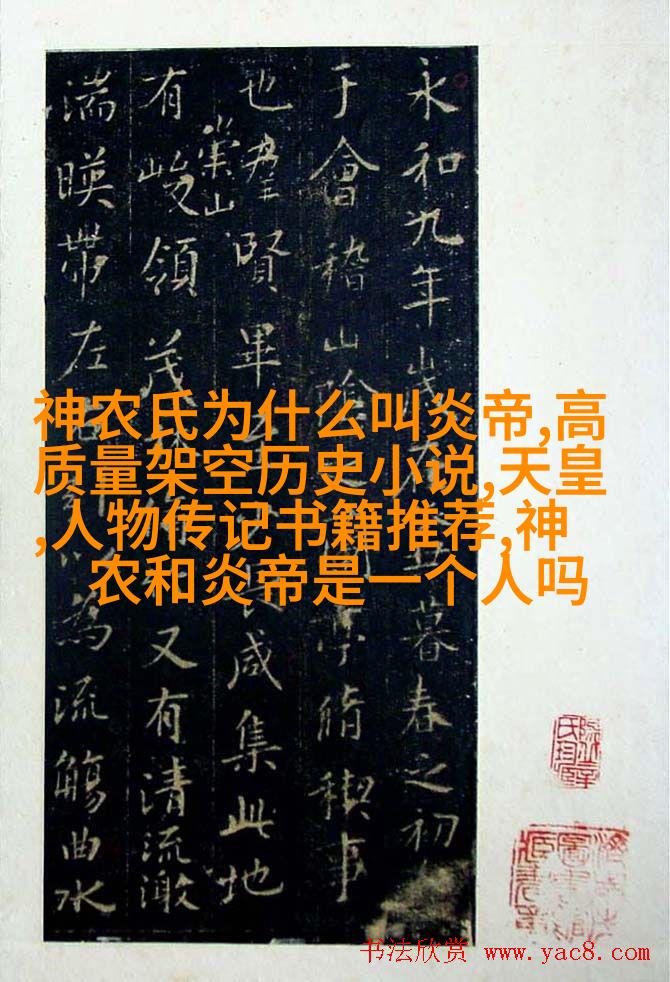 永和九年歲暮春之初
于會稽山陰脩稧事
也羣賢畢咸集此地
有崇山峻領茂又有清流激
湍暎帶左為流觴曲水
神农氏为什么叫炎帝,高
质量架空历史小说,天皇
,人物传记书籍推荐,神
农和炎帝是一个人吗
书法欣赏 www.yac8.com